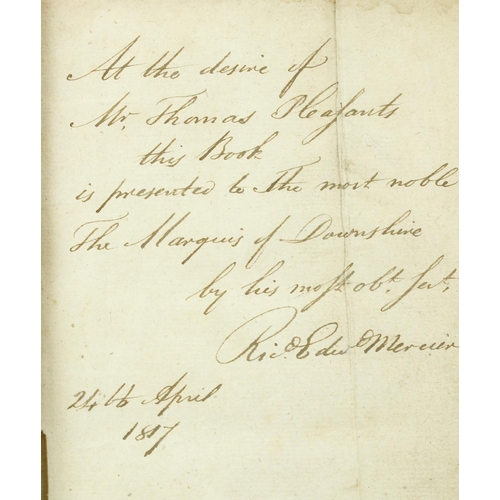 At the desire of
Mr. Thomas Pleasants
this Book
is presented to The most noble
The Marquis of Downshire
by his most obt. Sert,
Ricd. Edwd. Mercier
24th April
1817